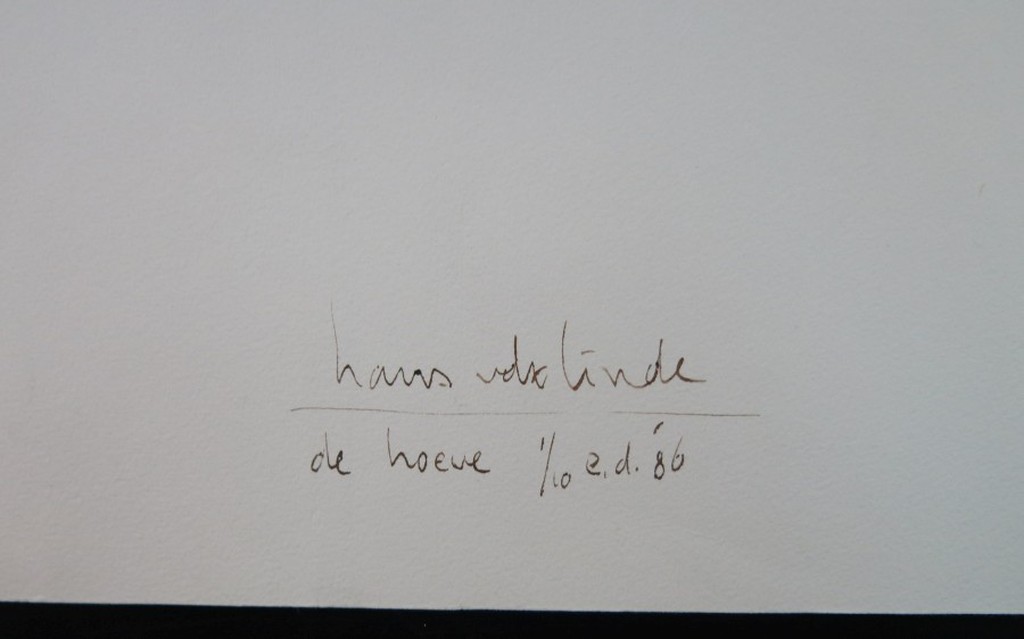 hans vdr linde
de hoeve 1/10 e.d. '86